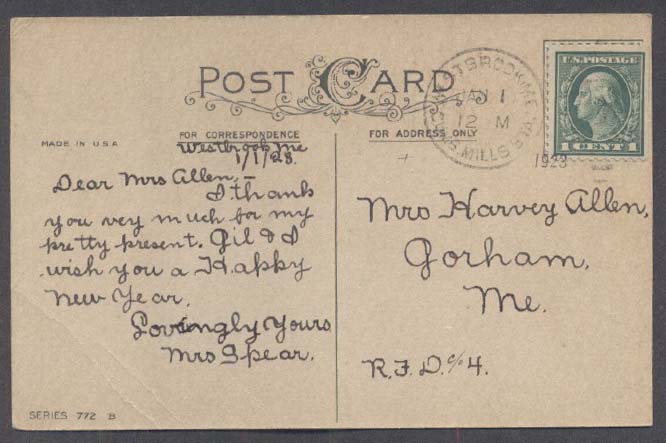 POST CARD
WESTBROOK, ME.
JAN 1
12 M
MILLS
U.S. POSTAGE
1 CENT 1
1923
MADE IN U.S.A
FOR CORRESPONDENCE
FOR ADDRESS ONLY
Westbrook Me
1/1/23.
Dear Mrs Allen,—
I thank
you very much for my
pretty present. Gil & I
wish you a Happy
New Year.
Lovingly Yours
Mrs Spear.
Mrs Harvey Allen,
Gorham,
Me.
R.F.D. #4.
SERIES 772 B